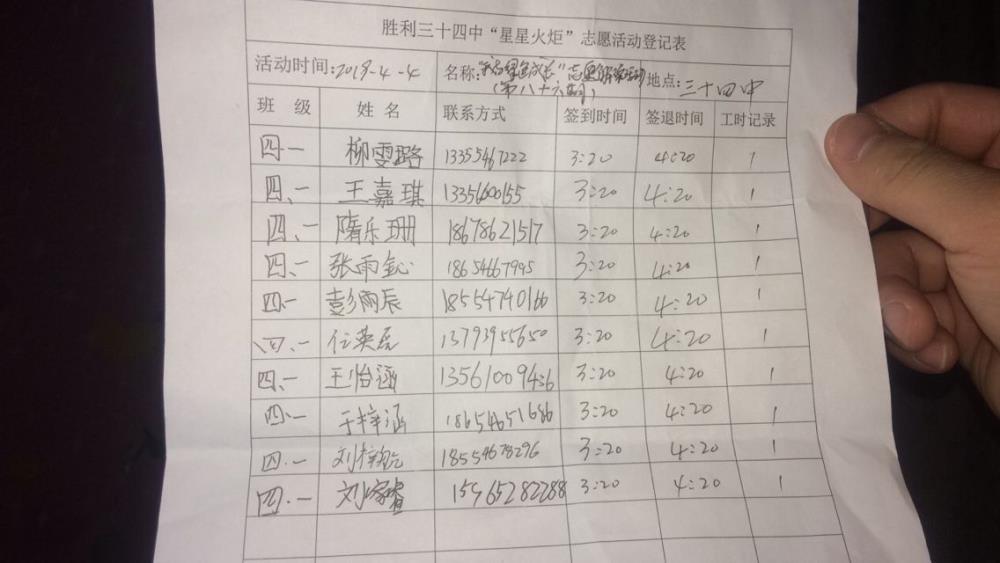 胜利三十四中“星星火炬”志愿活动登记表
活动时间:2019-4-4 名称: 绿色成长”志愿 活动 地点:三十四中
(第八十六期)
班 级 姓 名 联系方式 签到时间 签退时间 工时记录
四一 柳雯璐 13355467222 3:20 4:20 1
四、一 王嘉琪 13356600155 3:20 4:20 1
四、一 隋乐珊 18678621517 3:20 4:20 1
四、一 张雨 18654667995 3:20 4:20 1
四一 彭雨辰 18554740166 3:20 4:20 1
四、一 任英磊 13793955650 3:20 4:20 1
四、一 王怡涵 13561009436 3:20 4:20 1
四.一 于梓涵 18654651686 3:20 4:20 1
四.一 刘梓 18554678296 3:20 4:20 1
四.一 刘家睿 15965282288 3:20 4:20 1